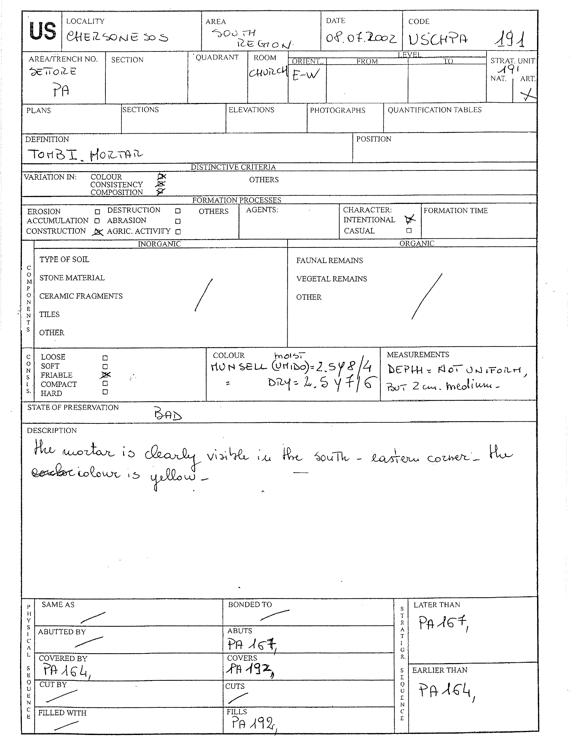 US
LOCALITY
CHERSONESOS
AREA
SOUTH
REGION
DATE
08.07.2002
CODE
USCHPA 191
AREA/TRENCH NO.
SETTORE
PA
SECTION
QUADRANT
ROOM
CHURCH
ORIENT.
E-W
LEVEL
FROM
TO
STRAT. UNIT
191
NAT. ART.
X
PLANS
SECTIONS
ELEVATIONS
PHOTOGRAPHS
QUANTIFICATION TABLES
DEFINITION
TOMB I. MORTAR
POSITION
DISTINCTIVE CRITERIA
VARIATION IN: COLOUR
CONSISTENCY
COMPOSITION
OTHERS
FORMATION PROCESSES
EROSION DESTRUCTION OTHERS
ACCUMULATION ABRASION
CONSTRUCTION AGRIC. ACTIVITY
AGENTS:
CHARACTER:
INTENTIONAL
CASUAL
FORMATION TIME
COMPONENTS
INORGANIC
TYPE OF SOIL
STONE MATERIAL
CERAMIC FRAGMENTS
TILES
OTHER
ORGANIC
FAUNAL REMAINS
VEGETAL REMAINS
OTHER
CONSIS.
LOOSE
SOFT
FRIABLE
COMPACT
HARD
COLOUR moist
MUNSELL (UMIDO) = 2.5Y8/4
= DRY = 2.5Y7/6
MEASUREMENTS
DEPHH = NOT UNIFORM,
BUT 2 cm. medium-
STATE OF PRESERVATION
BAD
DESCRIPTION
the mortar is clearly visible in the south - eastern corner - the
colour is yellow -
PHYSICAL SEQUENCE
SAME AS
BONDED TO
ABUTTED BY
ABUTS
PA 167,
COVERED BY
PA 164,
COVERS
PA 192,
CUT BY
CUTS
FILLED WITH
FILLS
PA 192,
STRATIGR. SEQUENCE
LATER THAN
PA 167,
EARLIER THAN
PA 164,